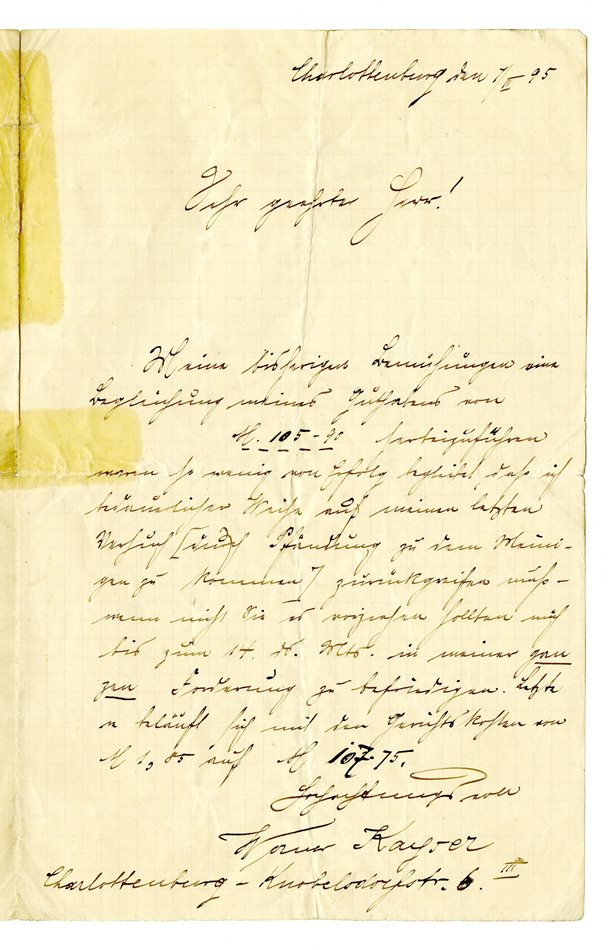 Charlottenburg den 7/II 95
Sehr geehrter Herr!
Meine bisherigen Bemühungen eine
Begleichung meines Guthabens von
M. 105-90 herbeizuführen
waren so wenig von Erfolg begleitet daß ich
bedauerlicher Weise auf meinen letzten
Versuch [durch Pfändung zu dem Meini-
gen zu kommen] zurückgreifen muß-
wenn nicht Sie es vorziehen sollten mich
bis zum 14. ds. Mts. in meiner gan
zen Forderung zu befriedigen. Letzte
r beläuft sich mit den Gerichtskosten von
M 1,85 auf M 107.75.
Hochachtungsvoll
Werner Kayser
Charlottenburg - Knobelsdorfstr. 6. III